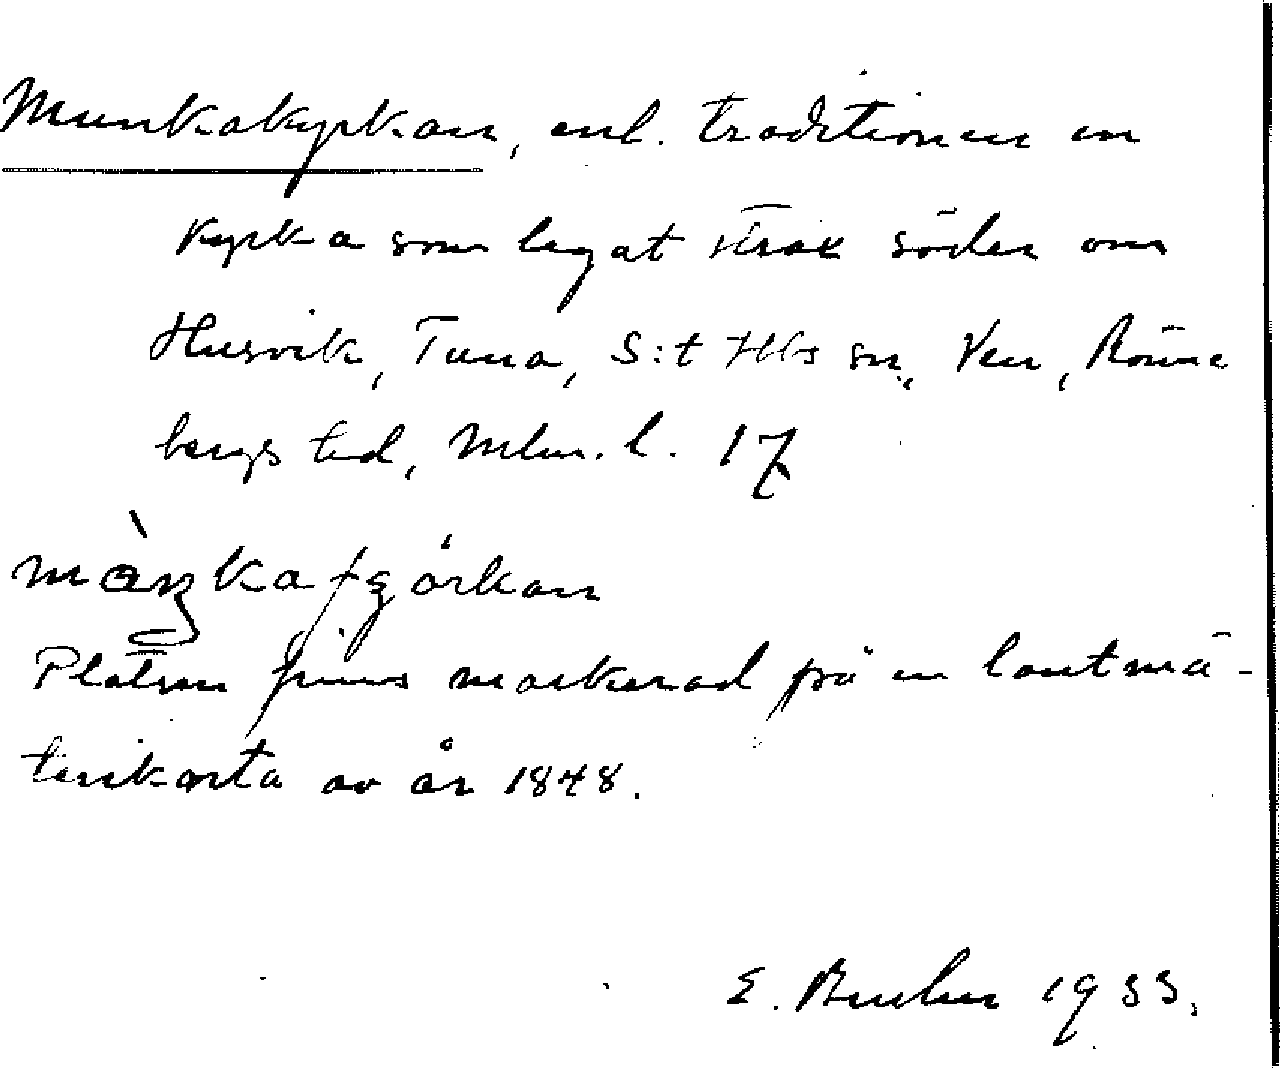 Munkakyrkan, enl. traditionen en
kyrka som legat strax söder om
Husvik, Tuna, S:t Ibbs sn, Ven, Rönne
bergs hd, Mlm. l. 17
Platsen finns markerad på en lantmä-
terikarta av år 1848.
E. 1933.